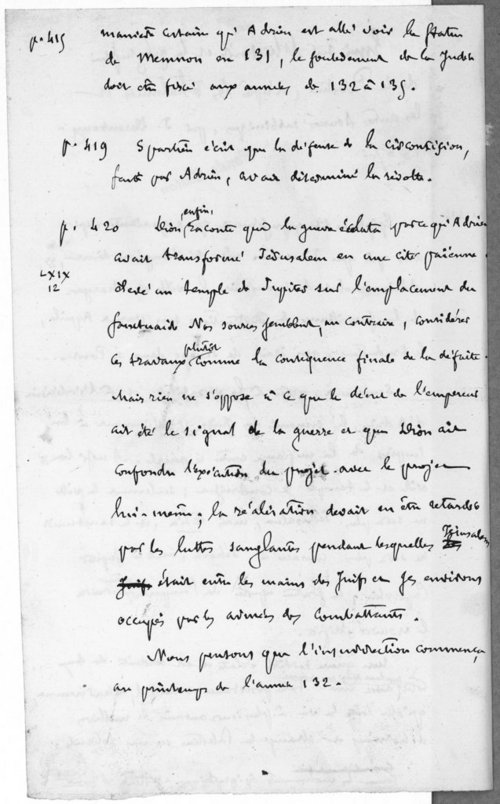 p. 415 maniere certain qu'Adrien est allé voir la statue
de Memnon en 131, le soulèvement de la Judée
doit être fixé aux années de 132 à 135.
p. 419 Spartien écrit que la défense de la circoncision,
faite par Adrien, avait déterminé la révolte.
p. 420 Dion enfin, raconte que la guerre éclata parce qu'Adrien
avait transformé Jérusalem en une cité païenne
LXIX 12 élevé un temple de Jupiter sur l'emplacement du
sanctuaire Nos sources semblent, au contraire, considérer
ces travaux plutôt comme la conséquence finale de la défaite.
Mais rien ne s'oppose à ce que le décret de l'empereur
ait été le signal de la guerre et que Dion ait
confondu l'exécution du projet avec le projet
lui-même; la réalisation devait en être retardée
par les luttes sanglantes pendant lesquelles Jérusalem
était entre les mains des Juifs et ses environs
occupés par les armées des combattants.
Nous pensons que l'insurrection commença
au printemps de l'année 132.